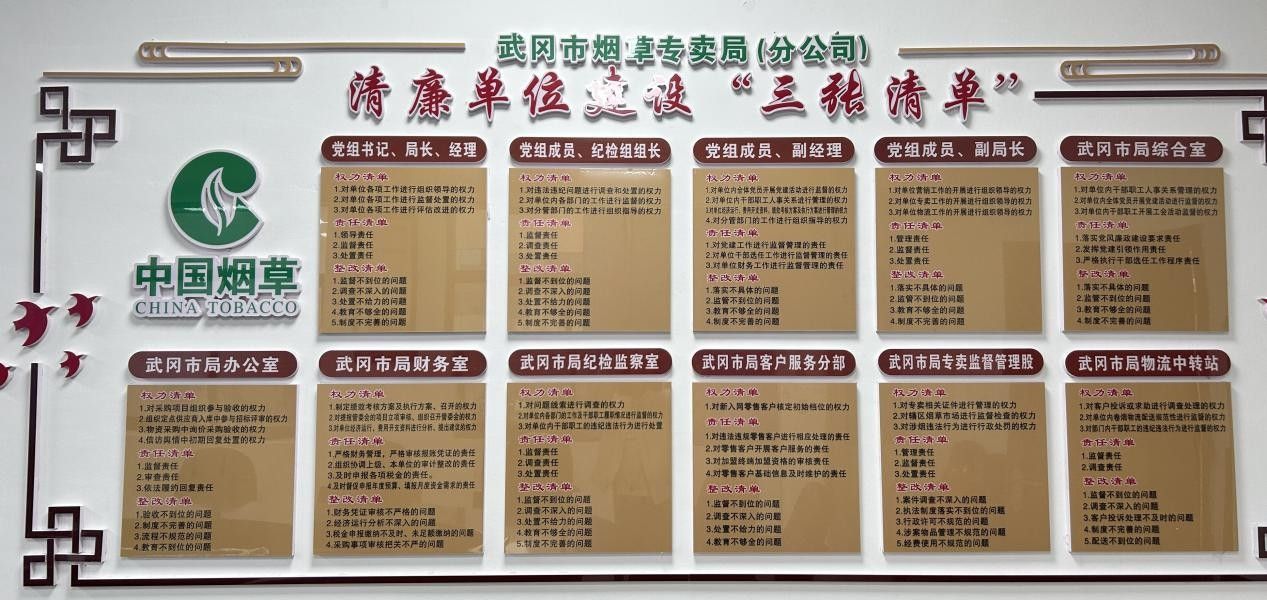 武冈市烟草专卖局(分公司)
清廉单位建设“三张清单”
中国烟草
CHINA TOBACCO
党组书记、局长、经理
权力清单
1.对单位各项工作进行组织领导的权力
2.对单位各项工作进行监督处置的权力
3.对单位各项工作进行评估改进的权力
责任清单
1.领导责任
2.监督责任
3.处置责任
整改清单
1.监督不到位的问题
2.调查不深入的问题
3.处置不给力的问题
4.教育不够全的问题
5.制度不完善的问题
党组成员、纪检组组长
权力清单
1.对违法违纪问题进行调查和处置的权力
2.对单位内各部门的工作进行监督的权力
3.对分管部门的工作进行组织指导的权力
责任清单
1.监督责任
2.调查责任
3.处置责任
整改清单
1.监督不到位的问题
2.调查不深入的问题
3.处置不给力的问题
4.教育不够全的问题
5.制度不完善的问题
党组成员、副经理
权力清单
1.对单位内全体党员开展党建活动进行监督的权力
2.对单位内干部职工人事关系进行管理的权力
4.对分管部门的工作进行组织指导的权力
责任清单
1.对党建工作进行监督管理的责任
2.对单位干部选任工作进行监督管理的责任
3.对单位财务工作进行监督管理的责任
整改清单
1.落实不具体的问题
2.监管不到位的问题
3.教育不够全的问题
4.制度不完善的问题
党组成员、副局长
权力清单
1.对单位营销工作的开展进行组织领导的权力
2.对单位专卖工作的开展进行组织领导的权力
3.对单位物流工作的开展进行组织领导的权力
责任清单
1.管理责任
2.监督责任
3.处置责任
整改清单
1.落实不具体的问题
2.监管不到位的问题
3.教育不够全的问题
4.制度不完善的问题
武冈市局综合室
权力清单
1.对单位内干部职工人事关系管理的权力
2.对单位内全体党员开展党建活动进行监督的权力
3.对单位内干部职工开展工会活动监督的权力
责任清单
1.落实党风廉政建设要求责任
2.发挥党建引领作用责任
3.严格执行干部选任工作程序责任
整改清单
1.落实不具体的问题
2.监管不到位的问题
3.教育不够全的问题
4.制度不完善的问题
武冈市局办公室
权力清单
1.对采购项目组织参与验收的权力
2.组织定点供应商入库中参与招标评审的权力
3.物资采购中询价采购验收的权力
4.信访舆情中初期回复处置的权力
责任清单
1.监督责任
2.审查责任
3.依法履约回复责任
整改清单
1.验收不到位的问题
2.制度不完善的问题
3.流程不规范的问题
4.教育不到位的问题
武冈市局财务室
权力清单
1.制定绩效考核方案及执行方案、召开的权力
2.对提报管委会的项目立项审核、组织召开管委会的权力
3.对单位经济运行、费用开支资料进行分析、提出建议的权力
责任清单
1.严格财务管理，严格审核报账凭证的责任
2.组织协调上级、本单位的审计整改的责任
3.及时申报各项税金的责任。
4.及时督促申报年度预算、填报月度资金需求的责任
整改清单
1.财务凭证审核不严格的问题
2.经济运行分析不深入的问题
3.税金申报缴纳不及时、未足额缴纳的问题
4.采购事项审核把关不严的问题
武冈市局纪检监察室
权力清单
1.对问题线索进行调查的权力
2.对单位内各部门的工作及干部职工履职情况进行监督的权力
3.对单位内干部职工的违纪违法行为进行处置
责任清单
1.监督责任
2.调查责任
3.处置责任
整改清单
1.监督不到位的问题
2.调查不深入的问题
3.处置不给力的问题
4.教育不够全的问题
5.制度不完善的问题
武冈市局客户服务分部
权力清单
1.对新入网零售客户核定初始档位的权力
责任清单
1.对违法违规零售客户进行相应处理的责任
2.对零售客户开展客户服务的责任
3.对加盟终端加盟资格的审核责任
4.对零售客户基础信息及时维护的责任
整改清单
1.监督不到位的问题
2.调查不深入的问题
3.处置不给力的问题
4.教育不够全的问题
武冈市局专卖监督管理股
权力清单
1.对专卖相关证件进行管理的权力
2.对辖区烟草市场进行监督检查的权力
3.对涉烟违法行为进行行政处罚的权力
责任清单
1.管理责任
2.监督责任
3.处置责任
整改清单
1.案件调查不深入的问题
2.执法制度落实不到位的问题
3.行政许可不规范的问题
4.涉案物品管理不规范的问题
5.经费使用不规范的问题
武冈市局物流中转站
权力清单
1.对客户投诉或求助进行调查处理的权力
2.对单位内卷烟物流配送规范性进行监督的权力
3.对部门内干部职工的违纪违法行为进行监督的权力
责任清单
1.监督责任
2.调查责任
整改清单
1.监督不到位的问题
2.调查不深入的问题
3.客户投诉处理不及时的问题
4.制度不完善的问题
5.配送不到位的问题